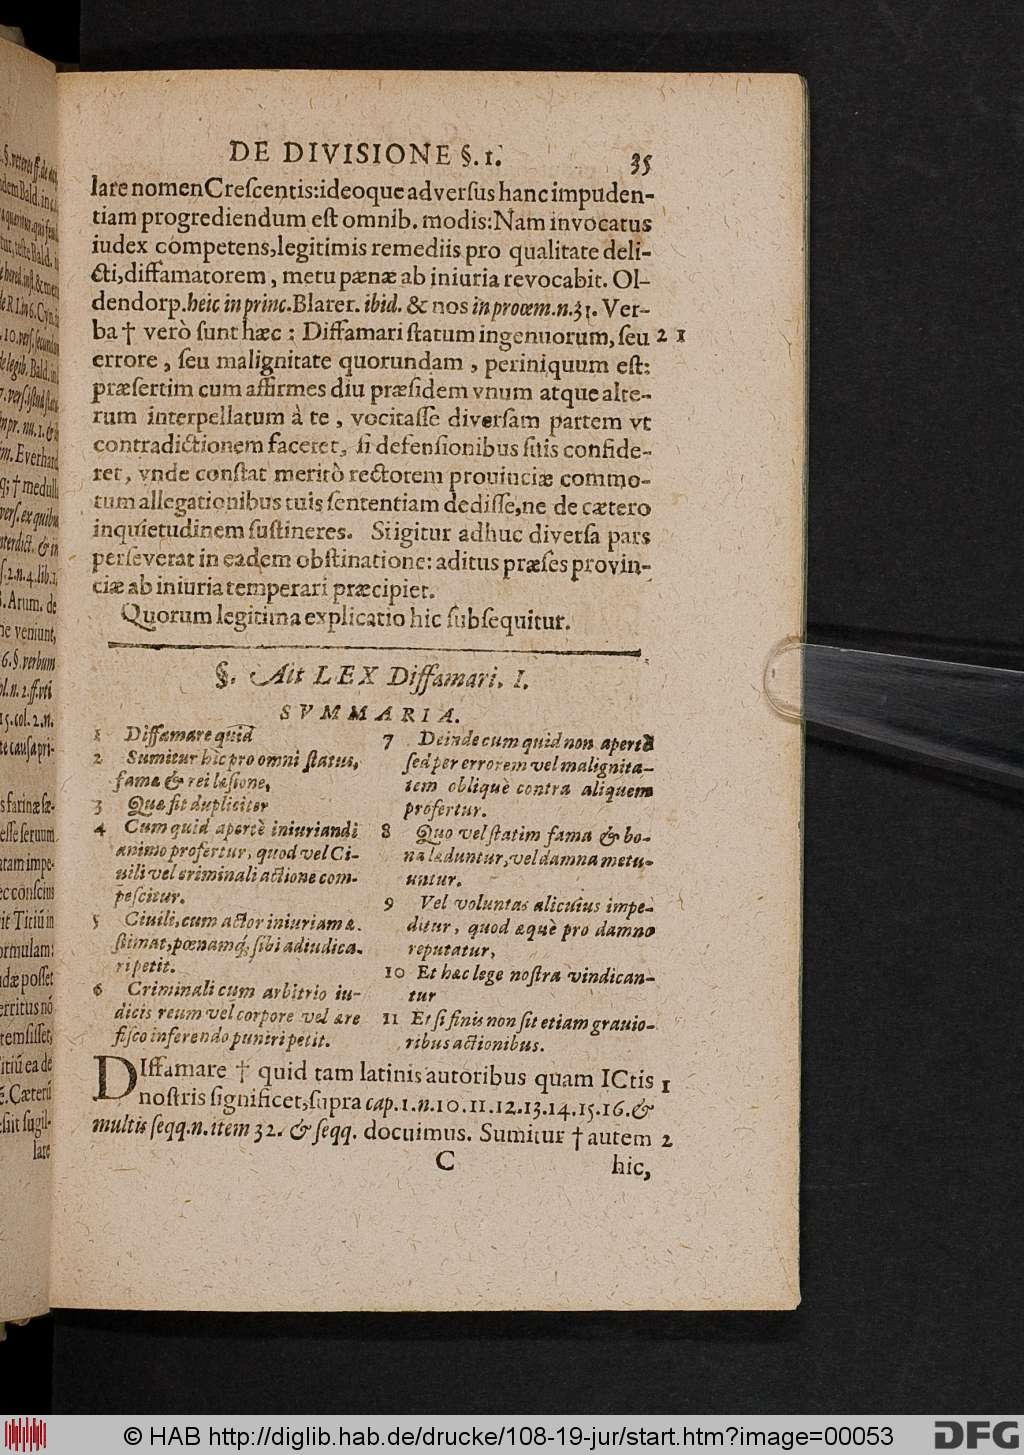 DE DIVISIONE §. 1. 35
lare nomen Crescentis: ideoque adversus hanc impuden-
tiam progrediendum est omnib. modis: Nam invocatus
iudex competens, legitimis remediis pro qualitate deli-
cti, diffamatorem, metu pænæ ab iniuria revocabit. Ol-
dendorp. heic in princ. Blarer. ibid. & nos in proœm. n. 31. Ver-
ba † verò sunt hæc: Diffamari statum ingenuorum, seu 2 1
errore, seu malignitate quorundam, periniquum est:
præsertim cum affirmes diu præsidem vnum atque alte-
rum interpellatum à te, vocitasse diversam partem vt
contradictionem faceret, si defensionibus suis confide-
ret, vnde constat meritò rectorem prouinciæ commo-
tum allegationibus tuis sententiam dedisse, ne de cætero
inquietudinem sustineres. Si igitur adhuc diversa pars
perseverat in eadem obstinatione: aditus præses provin-
ciæ ab iniuria temperari præcipiet.
Quorum legitima explicatio hic subsequitur.
§. Ait LEX Diffamari. I.
SVMMARIA.
1 Diffamare quid
2 Sumitur hîc pro omni status,
fama & rei læsione,
3 Quæ fit dupliciter
4 Cum quid apertè iniuriandi
animo profertur, quod vel Ci-
uili vel criminali actione com-
pescitur.
5 Ciuili, cum actor iniuriam æ-
stimat, pœnamq́; sibi adiudica-
ri petit.
6 Criminali cum arbitrio iu-
dicis reum vel corpore vel ære
fisco inferendo puniri petit.
7 Deinde cum quid non apertè
sed per errorem vel malignita-
tem obliquè contra aliquem
profertur.
8 Quo vel statim fama & bo-
na læduntur, vel damna metu-
untur.
9 Vel voluntas alicuius impe-
ditur, quod æquè pro damno
reputatur,
10 Et hæc lege nostra vindican-
tur
11 Et si finis non sit etiam grauio-
ribus actionibus.
DIffamare † quid tam latinis autoribus quam ICtis 1
nostris significet, supra cap. 1. n. 10. 11. 12. 13. 14. 15. 16. &
multis seqq. n. item 32. & seqq. docuimus. Sumitur † autem 2
C hic,
© HAB http://diglib.hab.de/drucke/108-19-jur/start.htm?image=00053
DFG